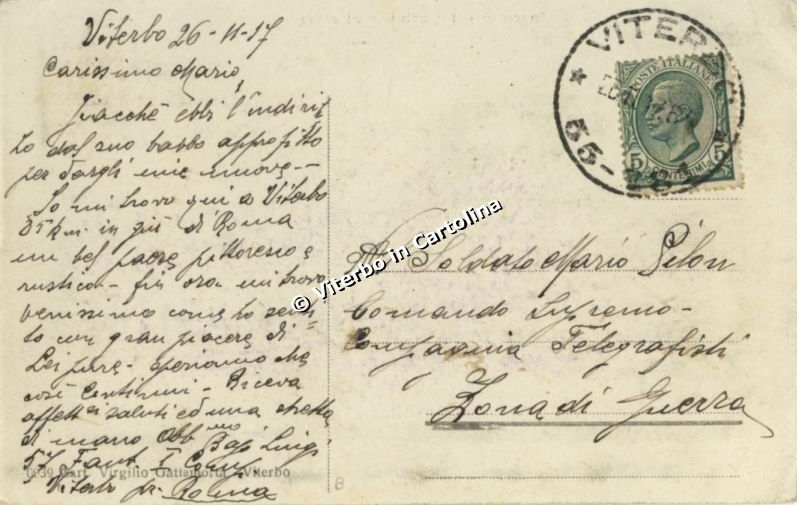 Viterbo 26-11-17
Carissimo Mario,
Giacché ebbi l'indiriz
zo dal suo babbo approfitto
per dargli mie nuove --
Io mi trovo qui a Viterbo
85 km. in giù di Roma
un bel paese pittoresco e
rustico - fin ora mi trovo
benissimo come lo sen
to con gran piacere di
Lei pure - speriamo che
così continui - Riceva
affett si saluti ed una stretta
di mano Obb mo
Luigi
57 Fant.
Viterbo pr. Roma
1039 Cart. Virgilio Gattamorta - Viterbo
VITERBO
55-26
POSTE ITALIANE
5 CENTESIMI 5
Al Soldato Mario Pilon
Comando Supremo -
Compagnia Telegrafisti
Zona di Guerra
© Viterbo in Cartolina
B